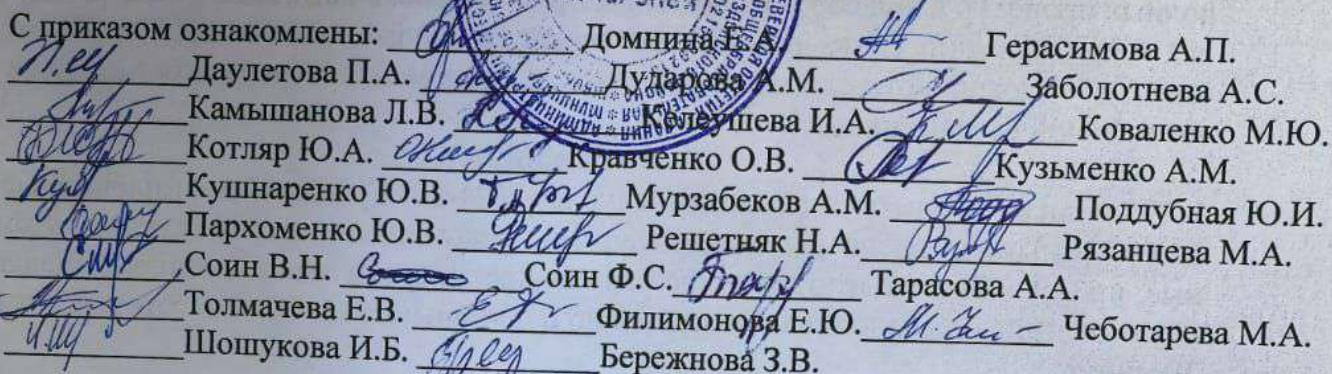 С приказом ознакомлены: Домнина Е.А. Герасимова А.П.
Даулетова П.А. Дударова А.М. Заболотнева А.С.
Камышанова Л.В. Келеушева И.А. Коваленко М.Ю.
Котляр Ю.А. Кравченко О.В. Кузьменко А.М.
Кушнаренко Ю.В. Мурзабеков А.М. Поддубная Ю.И.
Пархоменко Ю.В. Решетняк Н.А. Рязанцева М.А.
Соин В.Н. Соин Ф.С. Тарасова А.А.
Толмачева Е.В. Филимонова Е.Ю. Чеботарева М.А.
Шошукова И.Б. Бережнова З.В.